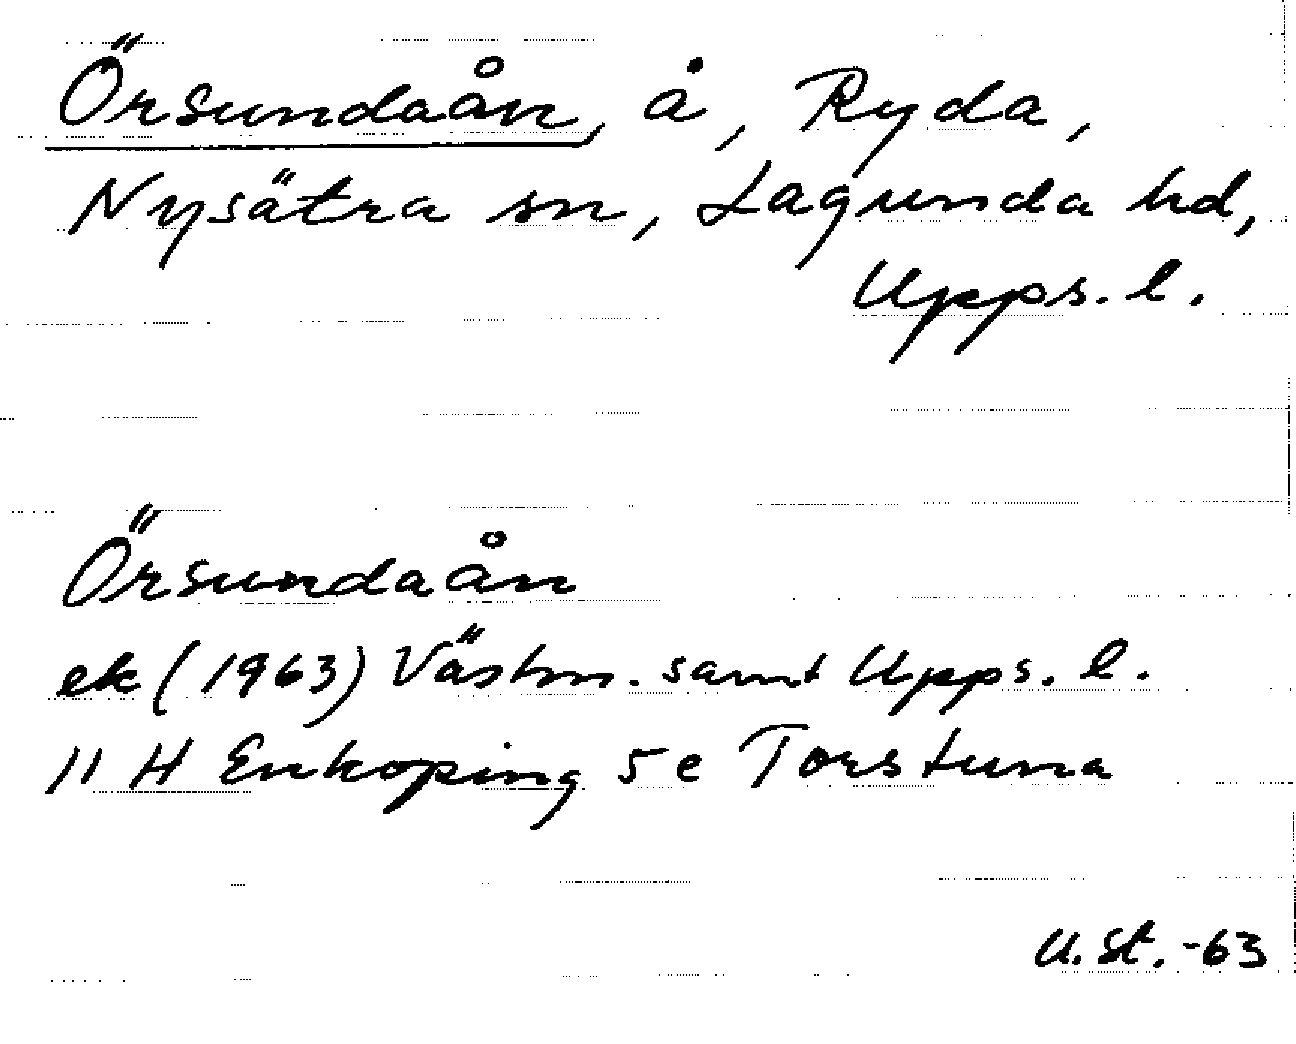 Örsundaån, å, Ryda,
Nysätra sn, Lagunda hd,
Upps. l.
Örsundaån
ek (1963) Västm. samt Upps. l.
11 H Enköping 5e Torstuna
U. St. -63